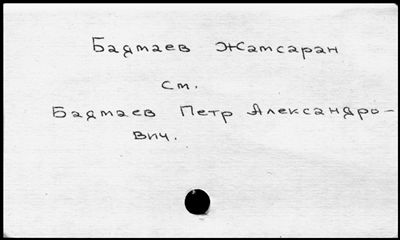 Бадмаев Жамсаран
см.
Бадмаев Петр Александро-
вич.